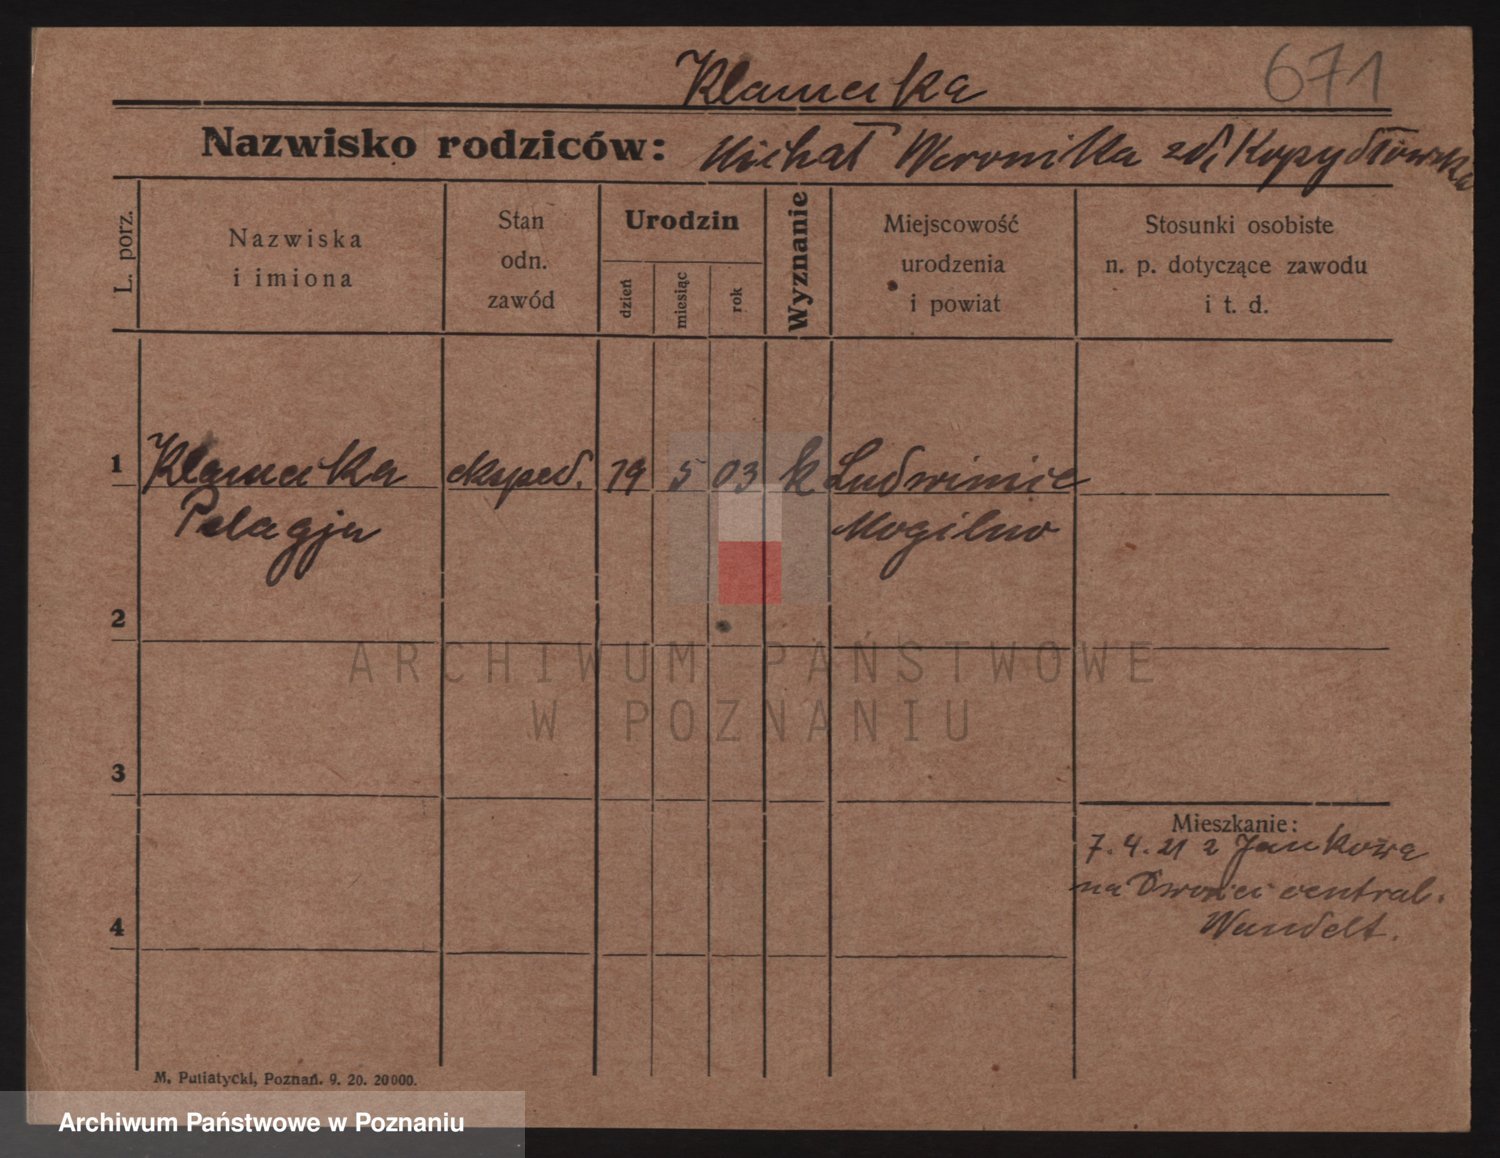 Klamecka
671
Nazwisko rodziców: Michał Weronika zd. Kopydłowska
L. porz.
Nazwiska
i imiona
Stan
odn.
zawód
Urodzin
dzień
miesiąc
rok
Wyznanie
Miejscowość
urodzenia
i powiat
Stosunki osobiste
n. p. dotyczące zawodu
i t. d.
1 Klamecka eksped. 19 5 03 k Ludwiniec
Pelagja Mogilno
2
3
4
Mieszkanie:
7.4.21 z Jankowa
na Dworzec central.
Wandelt.
M. Putiatycki, Poznań. 9. 20. 20000.
ARCHIWUM PAŃSTWOWE
W POZNANIU
Archiwum Państwowe w Poznaniu